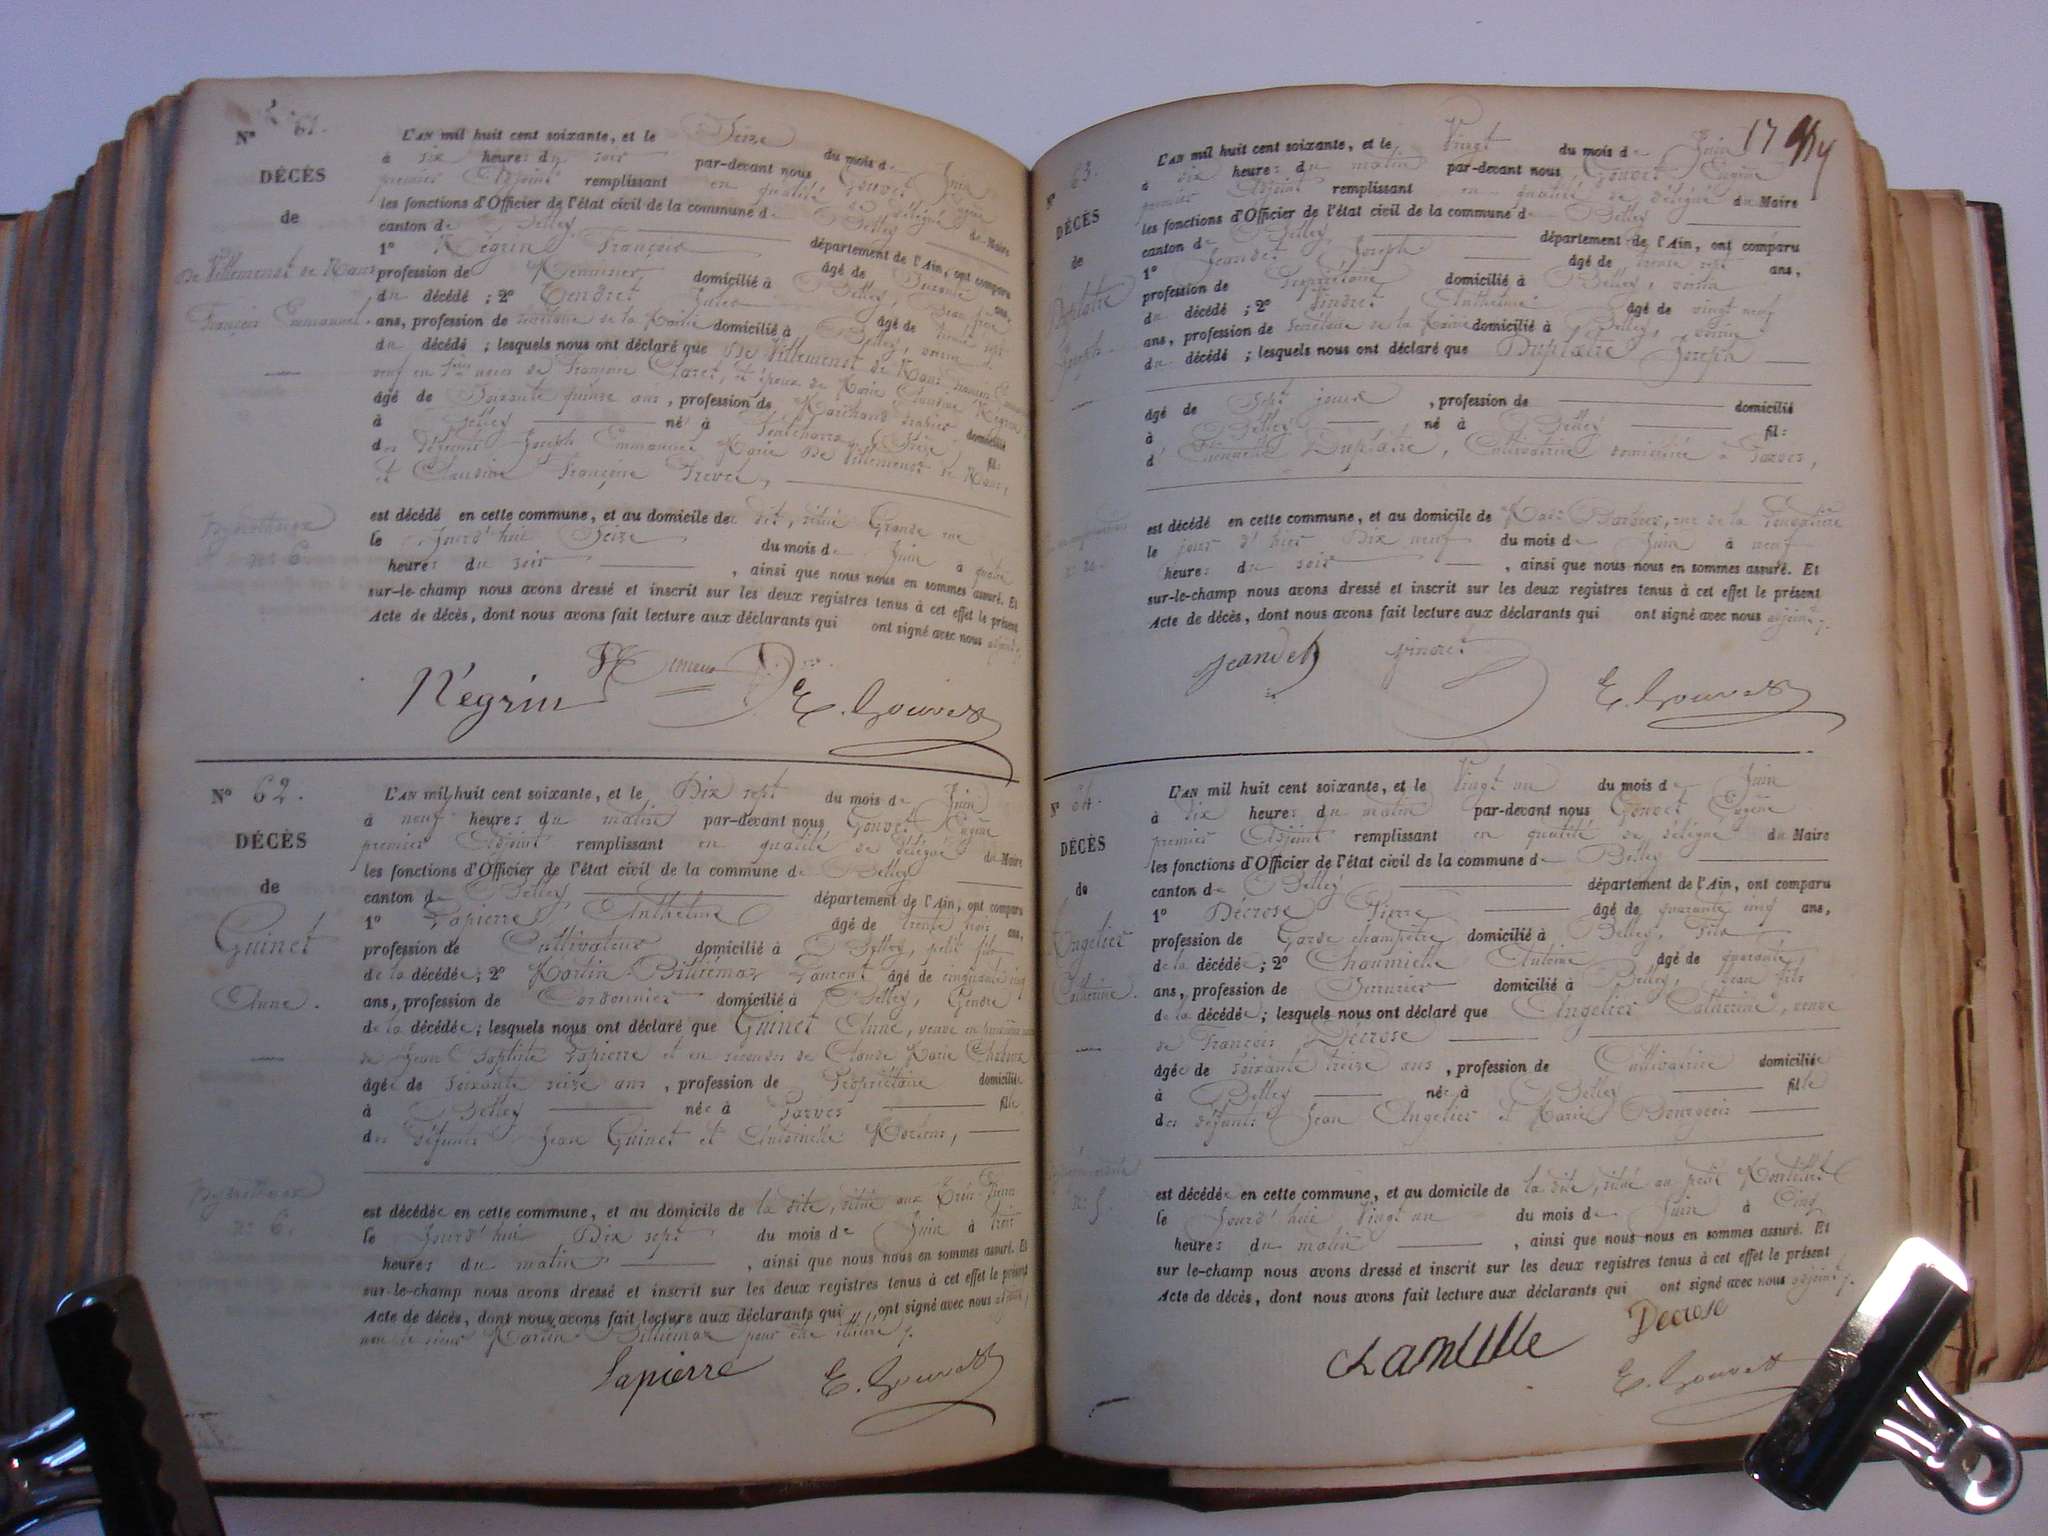 N° 61.
DÉCÈS
de
De Villemenot de Mans
François Emmanuel.
L'AN mil huit cent soixante, et le Seize du mois de Juin
à six heures du soir par-devant nous Gouvet Eugène
premier Adjoint remplissant en qualité de délégué du Maire
les fonctions d'Officier de l'état civil de la commune de Belley
canton de Belley département de l'Ain, ont comparu
1° Négrin François âgé de Soixante ans,
profession de Menuisier domicilié à Belley, Beau frère
du décédé ; 2° Jules âgé de trente sept
ans, profession de Secrétaire de la Mairie domicilié à Belley, voisin
du décédé ; lesquels nous ont déclaré que De Villemenot de Mans François Emmanuel
veuf en 1ères noces de Françoise Claret, et époux de Marie Claudine Négrin
âgé de Soixante quinze ans, profession de Marchand domicilié
à Belley né à Pontcharra (Isère) fils
des défunts Joseph Emmanuel Marie De Villemenot de Mans,
et Claudine Françoise
est décédé en cette commune, et au domicile de dit, situé Grande rue
le Jourd'hui Seize du mois de Juin à quatre
heures du soir , ainsi que nous nous en sommes assuré. Et
sur-le-champ nous avons dressé et inscrit sur les deux registres tenus à cet effet le présent
Acte de décès, dont nous avons fait lecture aux déclarants qui ont signé avec nous adjoint
n° 6.
Négrin E. Gouvet
N° 62.
DÉCÈS
de
Guinet
Anne.
L'AN mil huit cent soixante, et le Dix sept du mois de Juin
à neuf heures du matin par-devant nous Gouvet Eugène
premier Adjoint remplissant en qualité de délégué du Maire
les fonctions d'Officier de l'état civil de la commune de Belley
canton de Belley département de l'Ain, ont comparu
1° Lapierre Anthelme âgé de trente trois ans,
profession de Cultivateur domicilié à Belley, petit fils
de la décédée ; 2° Martin Billiémaz Laurent âgé de cinquante cinq
ans, profession de Cordonnier domicilié à Belley, Gendre
de la décédée ; lesquels nous ont déclaré que Guinet Anne, veuve en
de Jean Baptiste Lapierre et en secondes de Claude Marie
âgée de soixante seize ans, profession de Propriétaire domiciliée
à Belley née à Parves fille
des défunts Jean Guinet et Antoinette
est décédée en cette commune, et au domicile de la dite, située aux
le Jourd'hui Dix sept du mois de Juin à trois
heures du matin , ainsi que nous nous en sommes assuré. Et
sur-le-champ nous avons dressé et inscrit sur les deux registres tenus à cet effet le présent
Acte de décès, dont nous avons fait lecture aux déclarants qui ont signé avec nous adjoint,
non le sieur Martin Billiémaz pour être illitéré
n° 6.
Lapierre E. Gouvet
17
N° 63.
DÉCÈS
de
Duplatre
Joseph.
L'AN mil huit cent soixante, et le Vingt du mois de Juin
à dix heures du matin par-devant nous Gouvet Eugène
premier Adjoint remplissant en qualité de délégué du Maire
les fonctions d'Officier de l'état civil de la commune de Belley
canton de Belley département de l'Ain, ont comparu
1° Jeandet Joseph âgé de trente sept ans,
profession de Propriétaire domicilié à Belley, voisin
du décédé ; 2° Gindret Anthelme âgé de vingt neuf
ans, profession de Secrétaire de la Mairie domicilié à Belley, voisin
du décédé ; lesquels nous ont déclaré que Duplatre Joseph
âgé de Sept jours , profession de domicilié
à Belley né à Belley fils
d' Duplatre, Cultivatrice domiciliée à Parves,
est décédé en cette commune, et au domicile de rue de la
le jour d'hier Dix neuf du mois de Juin à neuf
heures du soir , ainsi que nous nous en sommes assuré. Et
sur-le-champ nous avons dressé et inscrit sur les deux registres tenus à cet effet le présent
Acte de décès, dont nous avons fait lecture aux déclarants qui ont signé avec nous adjoint
Jeandet Gindret
E. Gouvet
N° 64.
DÉCÈS
de
Angelier
Catherine.
L'AN mil huit cent soixante, et le Vingt un du mois de Juin
à dix heures du matin par-devant nous Gouvet Eugène
premier Adjoint remplissant en qualité de délégué du Maire
les fonctions d'Officier de l'état civil de la commune de Belley
canton de Belley département de l'Ain, ont comparu
1° Décrose Pierre âgé de quarante cinq ans,
profession de Garde champêtre domicilié à Belley, fils
de la décédée ; 2° Antoine âgé de quarante
ans, profession de Serrurier domicilié à Belley, beau fils
de la décédée ; lesquels nous ont déclaré que Angelier Catherine, veuve
de François Décrose
âgée de soixante treize ans, profession de Cultivatrice domiciliée
à Belley née à Belley fille
des défunts Jean Angelier et Marie Bourgeois
est décédée en cette commune, et au domicile de la dite, situé au petit
le Jourd'hui Vingt un du mois de Juin à Cinq
heures du matin , ainsi que nous nous en sommes assuré. Et
sur le-champ nous avons dressé et inscrit sur les deux registres tenus à cet effet le présent
Acte de décès, dont nous avons fait lecture aux déclarants qui ont signé avec nous adjoint
n° 5.
Decrose
E. Gouvet